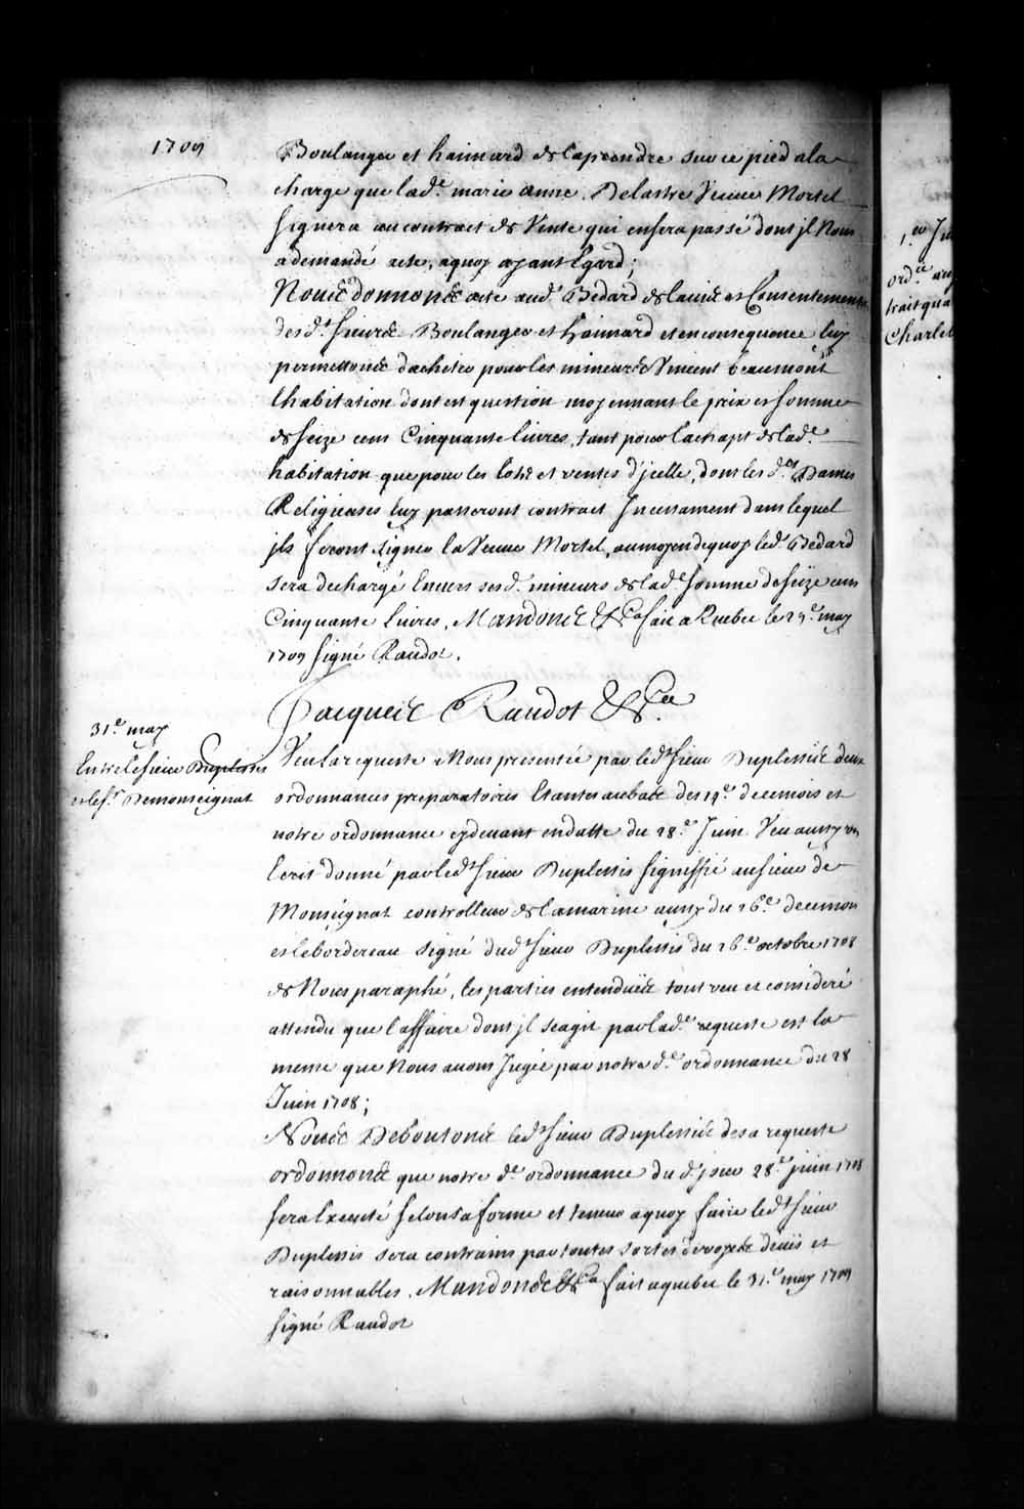 1709
Boulanger et haimard de la prendre sur ce pied a la
charge que lad.e marie anne Delastre Veuue Mortel
signera au contract de Vente qui en sera passé dont jl Nous
a demandé acte, aquoy ayant Egard;
Nous donnons acte aud.t Bedard de l'auis et Consentement
desd.ts sieurs Boulanger et haimard et en consequence luy
permettons d'acheter pour les mineurs Vincent beaumont
lhabitation dont est question moyennant le prix et somme
de seize cens Cinquante liures, tant pour l'achapt de lad.e
habitation que pour les lots et ventes d'jcelle, dont lesd.es Dames
Religieuses luy passeront contract Incessament dans lequel
jls feront signer la Veuue Mortel, au moyen dequoy led.t Bedard
sera dechargé Enuers sesd. mineurs de lad.e somme de seize cens
Cinquante liures, Mandons &.ca fait a Quebec le 29.e may
1709 signé Raudot.
31.e may
Entre le sieur Duplessis
et le s.r Demonseignat
Jacques Raudot &.ca
Veu la requeste a Nous presentée par led.t sieur Duplessis deux
ordonnances preparatoires Estantes au bas des 19.e de ce mois et
notre ordonnance cy deuant en datte du 28.e Juin Veu aussy un
Ecrit donné par led.t sieur Duplessis signiffié au sieur de
Monseignat controlleur de la marine aussy du 26.e de ce mois
et le bordereau signé dud.t sieur Duplessis du 26.e octobre 1708
de Nous paraphé, les parties entendües tout veu et consideré
attendu que l'affaire dont jl seagit par lad.e requeste est la
meme que Nous auons Jugée par notre d.e ordonnance du 28
Juin 1708;
Nous Deboutons led.t sieur Duplessis de sa requeste
ordonnons que notre d.e ordonnance du d. jour 28.e juin 1708
sera Executé selon sa forme et teneur aquoy faire led.t sieur
Duplessis sera contraint par toutes sortes de voyes deües et
raisonnables. Mandons &.ca fait a quebec le 31.e may 1709
signé Raudot
1.er Jui
ord.ce
trait qua
Charles